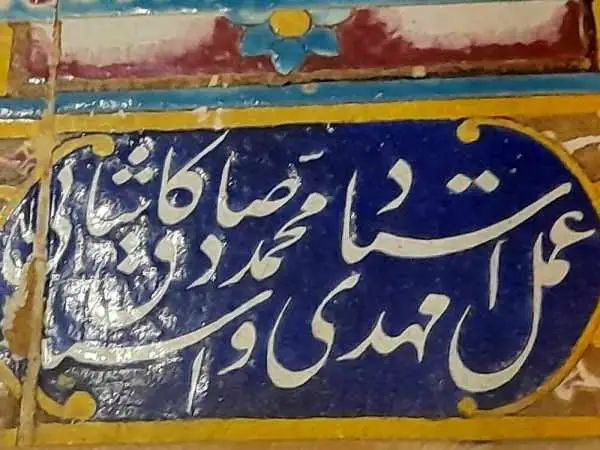 عمل استاد مهدی و استاد محمد صادق